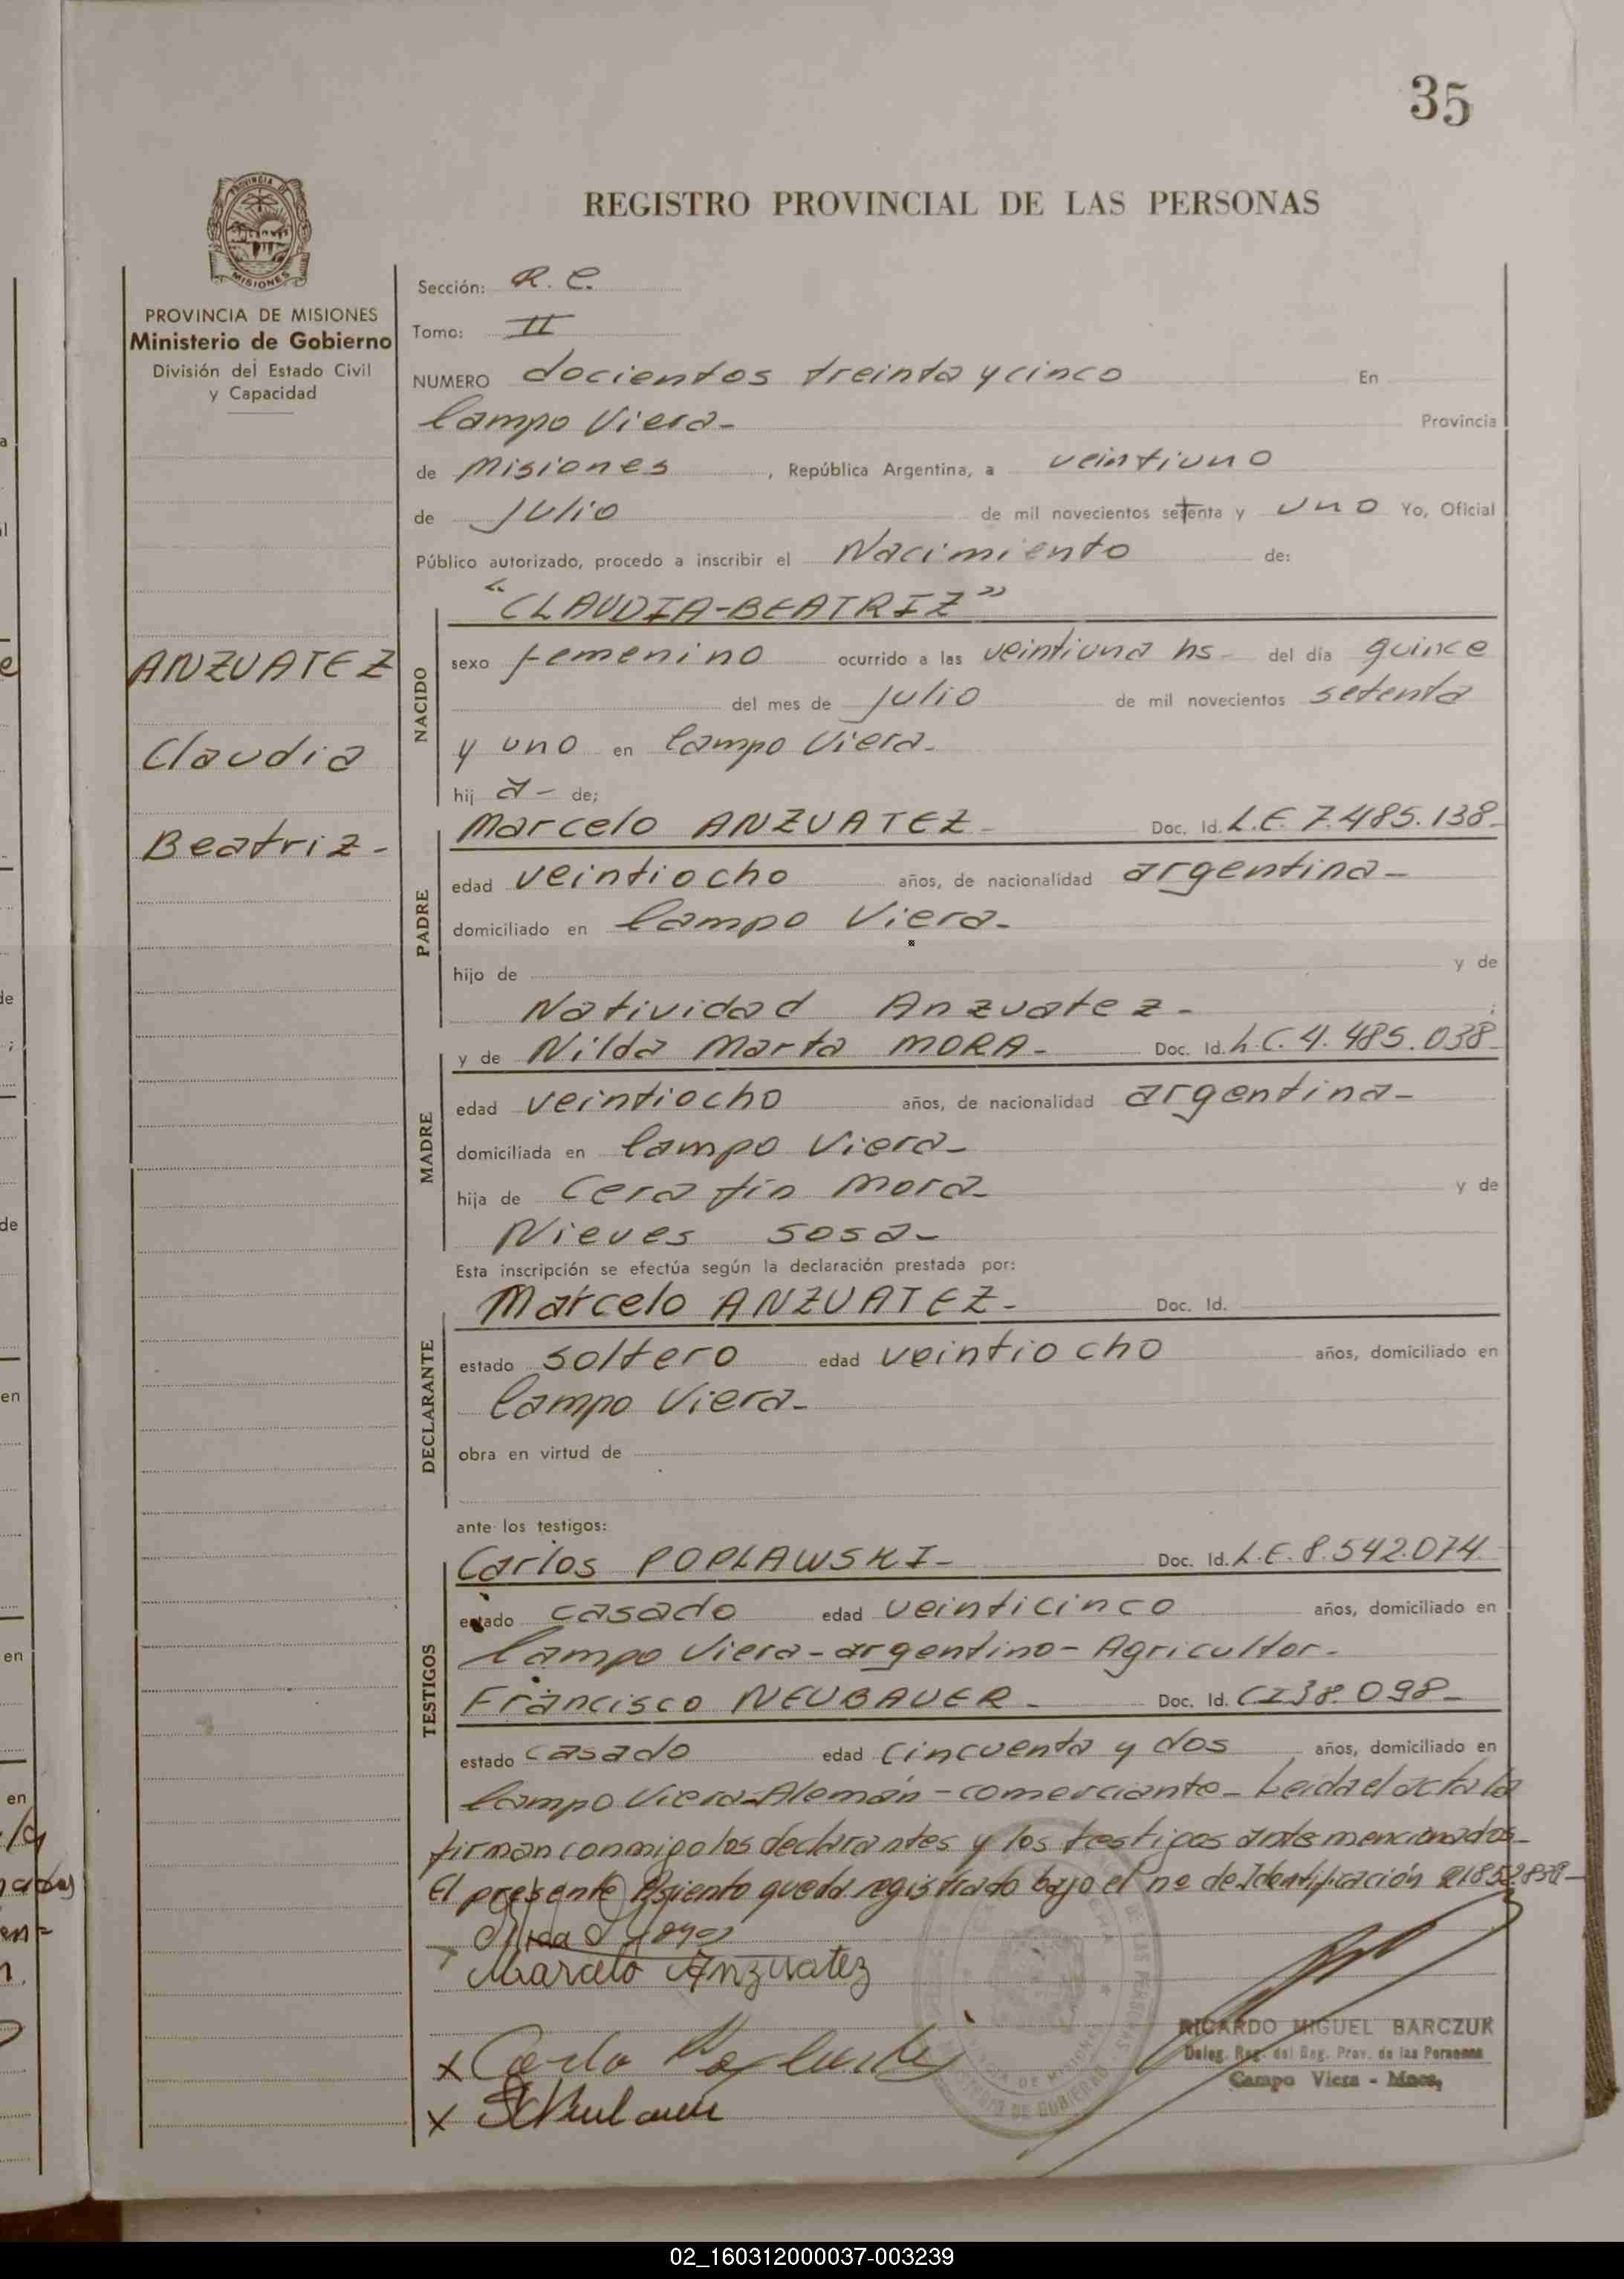 35
REGISTRO PROVINCIAL DE LAS PERSONAS
PROVINCIA DE
MISIONES
PROVINCIA DE MISIONES
Ministerio de Gobierno
División del Estado Civil
y Capacidad
ANZUATEZ
Claudia
Beatriz-
Sección: R. C.
Tomo: II
NUMERO docientos treinta y cinco En
Campo Viera- Provincia
de Misiones, República Argentina, a veintiuno
de Julio de mil novecientos setenta y uno Yo, Oficial
Público autorizado, procedo a inscribir el Nacimiento de:
"CLAUDIA-BEATRIZ"
NACIDO
sexo femenino ocurrido a las veintiuna hs- del día quince
del mes de Julio de mil novecientos setenta
y uno en Campo Viera-
hij a- de;
PADRE
Marcelo ANZUATEZ- Doc. Id. L.E. 7.485.138-
edad veintiocho años, de nacionalidad argentina-
domiciliado en Campo Viera-
hijo de y de
Natividad Anzuatez- ;
MADRE
y de Nilda Marta MORA- Doc. Id. L.C. 4.485.038-
edad veintiocho años, de nacionalidad argentina-
domiciliada en Campo Viera-
hija de Cerafin Mora- y de
Nieves Sosa-
Esta inscripción se efectúa según la declaración prestada por:
DECLARANTE
Marcelo ANZUATEZ- Doc. Id.
estado Soltero edad veintiocho años, domiciliado en
Campo Viera-
obra en virtud de
ante los testigos:
TESTIGOS
Carlos POPLAWSKI- Doc. Id. L.E. 8.542.074-
estado casado edad veinticinco años, domiciliado en
Campo Viera-argentino-Agricultor-
Francisco NEUBAUER- Doc. Id. CI 38.098-
estado casado edad cincuenta y dos años, domiciliado en
Campo Viera-Alemán-comerciante-Leida el acta la
firman conmigo los declarantes y los testigos ante mencionados-
El presente Asiento queda registrado bajo el nº de Identificación 21852.838-
Marcelo Anzuatez
x Carlo
x
RICARDO MIGUEL BARCZUK
Deleg. Reg. del Reg. Prov. de las Personas
Campo Viera - Mnes,
02_160312000037-003239